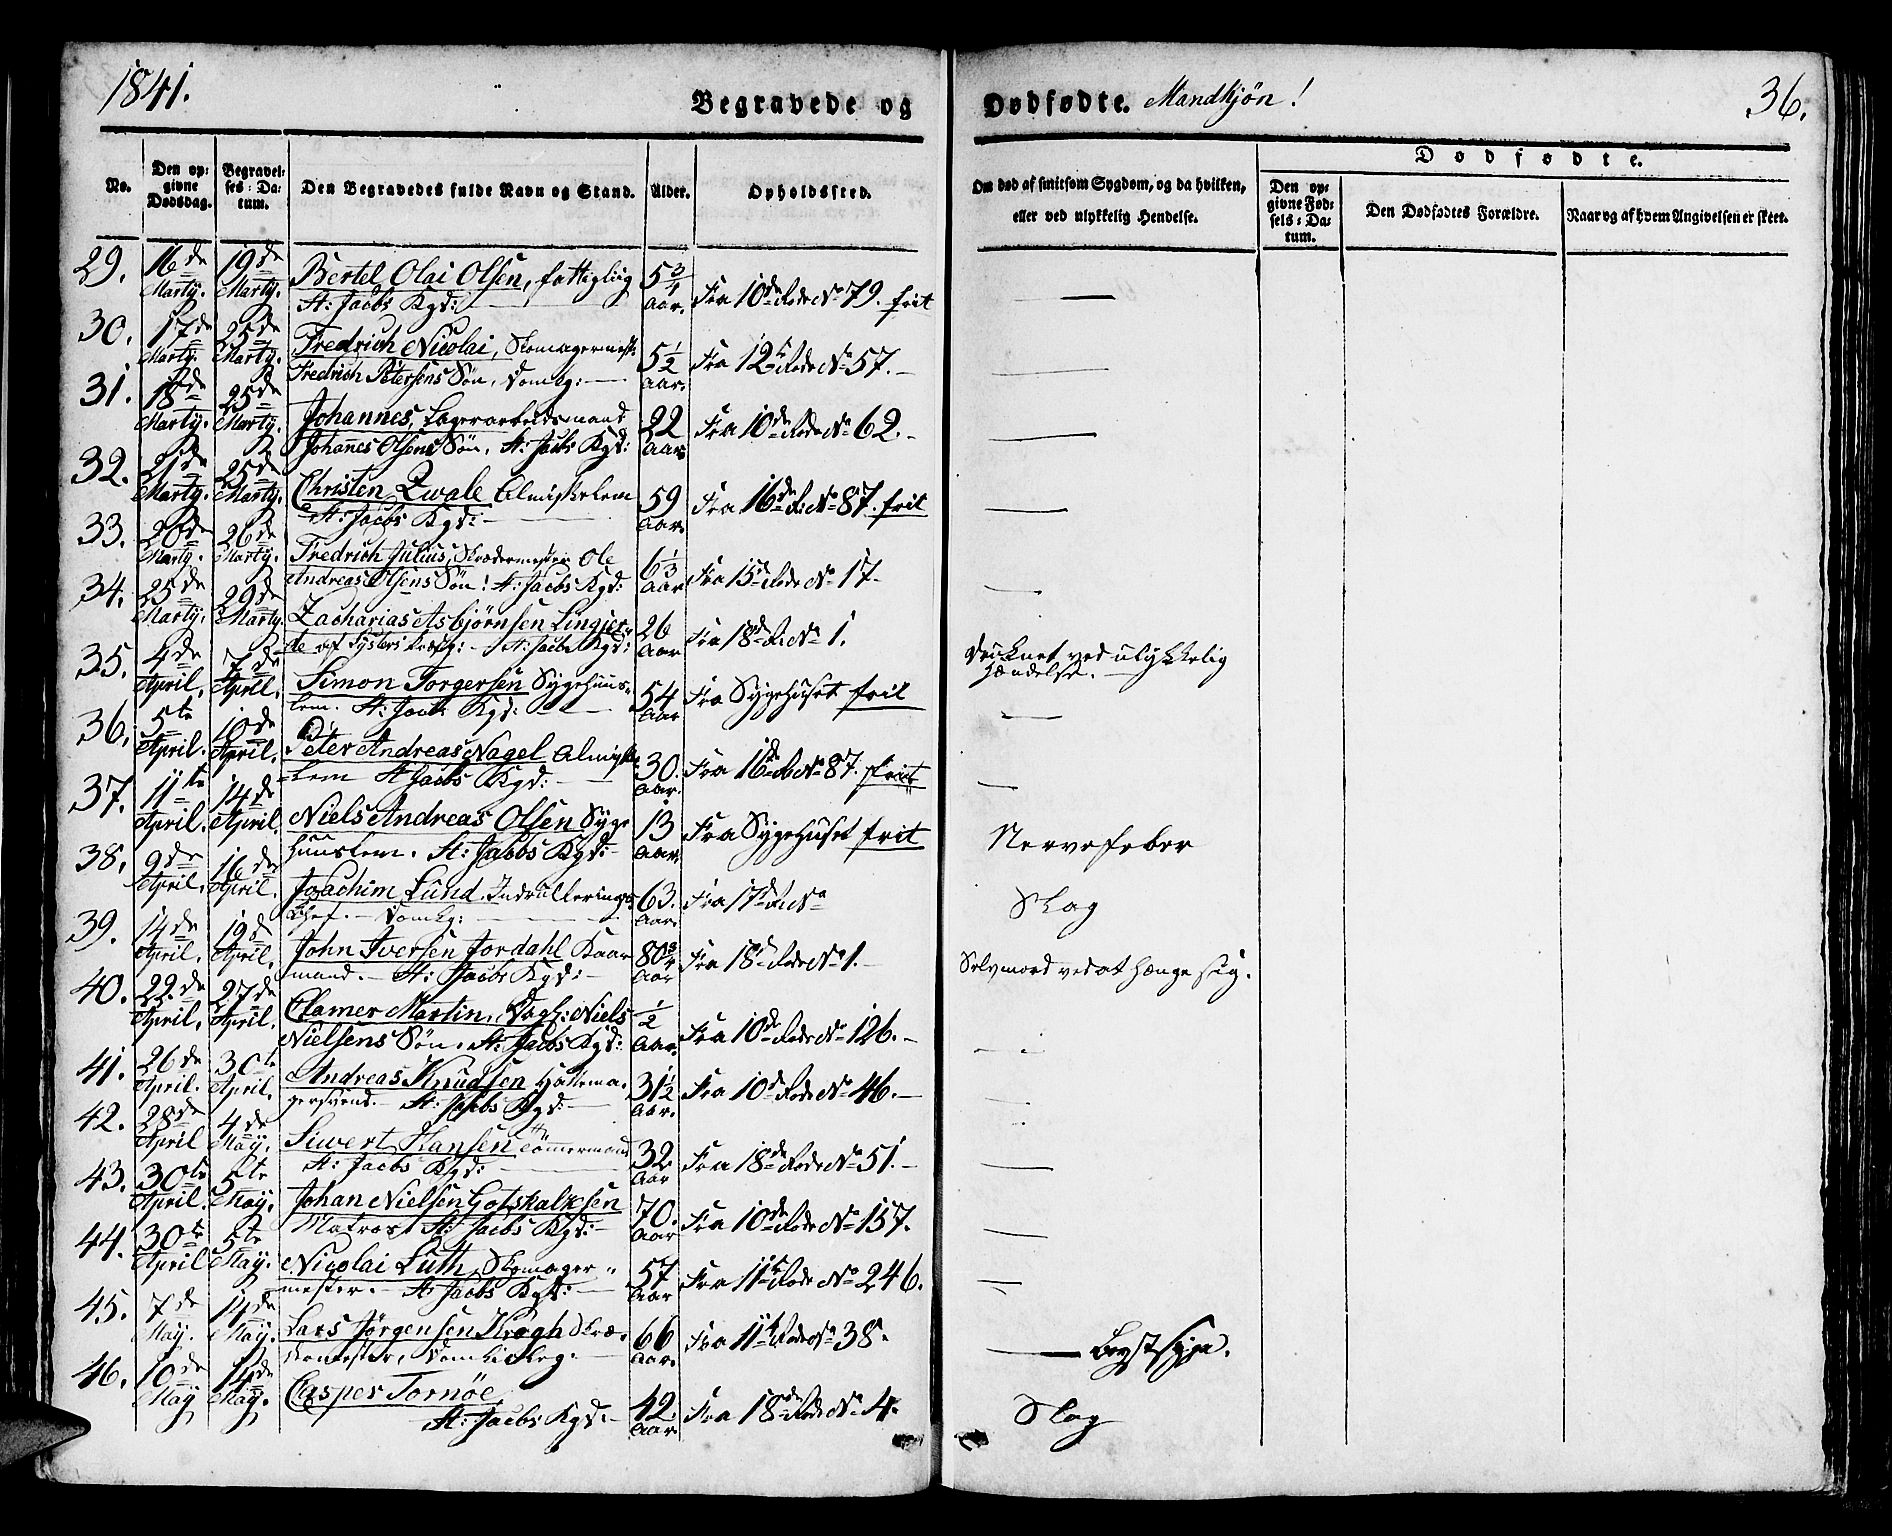 1841.
Begravede og
Dødfødte. Mandkjøn!
36.
No.
Den opgivne Dødsdag.
Begravelses-Datum.
Den Begravedes fulde Navn og Stand.
Alder.
Opholdssted.
Om død af smitsom Sygdom, og da hvilken,
eller ved ulykkelig Hendelse.
Dødfødte.
Den opgivne Fødsels-Datum.
Den Dødfødtes Forældre.
Naar og af hvem Angivelsen er skeet.
29. 16de Marty. 19de Marty. Bertel Olai Olsen, fattiglig
St: Jacobs Kgd: 5 3/4 Aar. Fra 10de Rode No 79. frit
30. 17de Marty. 25de Marty. Fredrich Nicolai, Skomagermest:
Fredrich Petersens Søn, Domkg: 5 1/2 Aar. Fra 12te Rode No 57.
31. 18de Marty. 25de Marty. Johannes, Lagerarbeidsmand
Johanes Olsens Søn, St: Jacobs Kgd: 22 Aar Fra 10de Rode No 62.
32. 21de Marty. 25de Marty. Christen Zwale Almiskelem
St: Jacobs Kgd: 59 Aar. Fra 16de R: No 87. frit
33. 20de Marty. 26de Marty. Fredrich Julius, Skrædermester Ole
Andreas Olsens Søn! St: Jacobs Kgd: 6 1/3 Aar Fra 15de Rode No 17.
34. 25de Marty. 29de Marty. Zacharias Asbjørnsen
St: Jacobs Kgd: 26 Aar Fra 18de R: No 1. Druknet ved ulykkelig
Hændelse.
35. 4de April. 7de April. Simon Torgersen Sygehuus-
lem. St: Jacobs Kgd: 54 Aar Fra Sygehuset frit
36. 5te April. 10de April. Peter Andreas Nagel Almiske-
lem St Jacobs Kgd: 30. Aar. Fra 16de R: No 87. frit
37. 11te April. 14de April. Niels Andreas Olsen Syge
huuslem. St: Jacobs Kgd: 13 Aar. Fra Sygehuset frit Nervefeber
38. 9de April. 16de April. Joachim Lund, Indrullerings-
Chef. Domkg: 63. Aar. Fra 17de R: No Slag
39. 14de April. 19de April. John Iversen Jordahl Kaar
mand. St: Jacobs Kgd: 80 3/4 Aar Fra 18de Rode No 1. Selvmord ved at hænge sig.
40. 22de April. 27de April. Clamer Martin, Dagl: Niels
Nielsens Søn. St: Jacobs Kgd: 1/2 Aar. Fra 10de Rode No 126.
41. 26de April. 30te April. Andreas Knudsen Hattema-
gersvend. St: Jacobs Kgd: 31 1/2 Aar. Fra 10de Rode No 46.
42. 28de April 4de May. Siwert Hansen Tømermand
St: Jacobs Kgd: 32 Aar Fra 18de Rode No 51.
43. 30te April. 5te May. Johan Nielsen Gotskalksen
Matros St: Jacobs Kgd: 70. Aar Fra 10de Rode No 157.
44. 30te April 5te May. Nicolai Luth, Skomager-
mester. St: Jacobs Kgd: 57 Aar Fra 11te Rode No 246.
45. 7de May. 14de May. Lars Jørgensen Kragh Skræ-
domester, 66 Aar. Fra 11te Rode No 38. Brystsyge.
46. 10de May 14de May. Casper Tornöe
St: Jacobs Kgd: 42. Aar Fra 18de Rode No 4. Slag